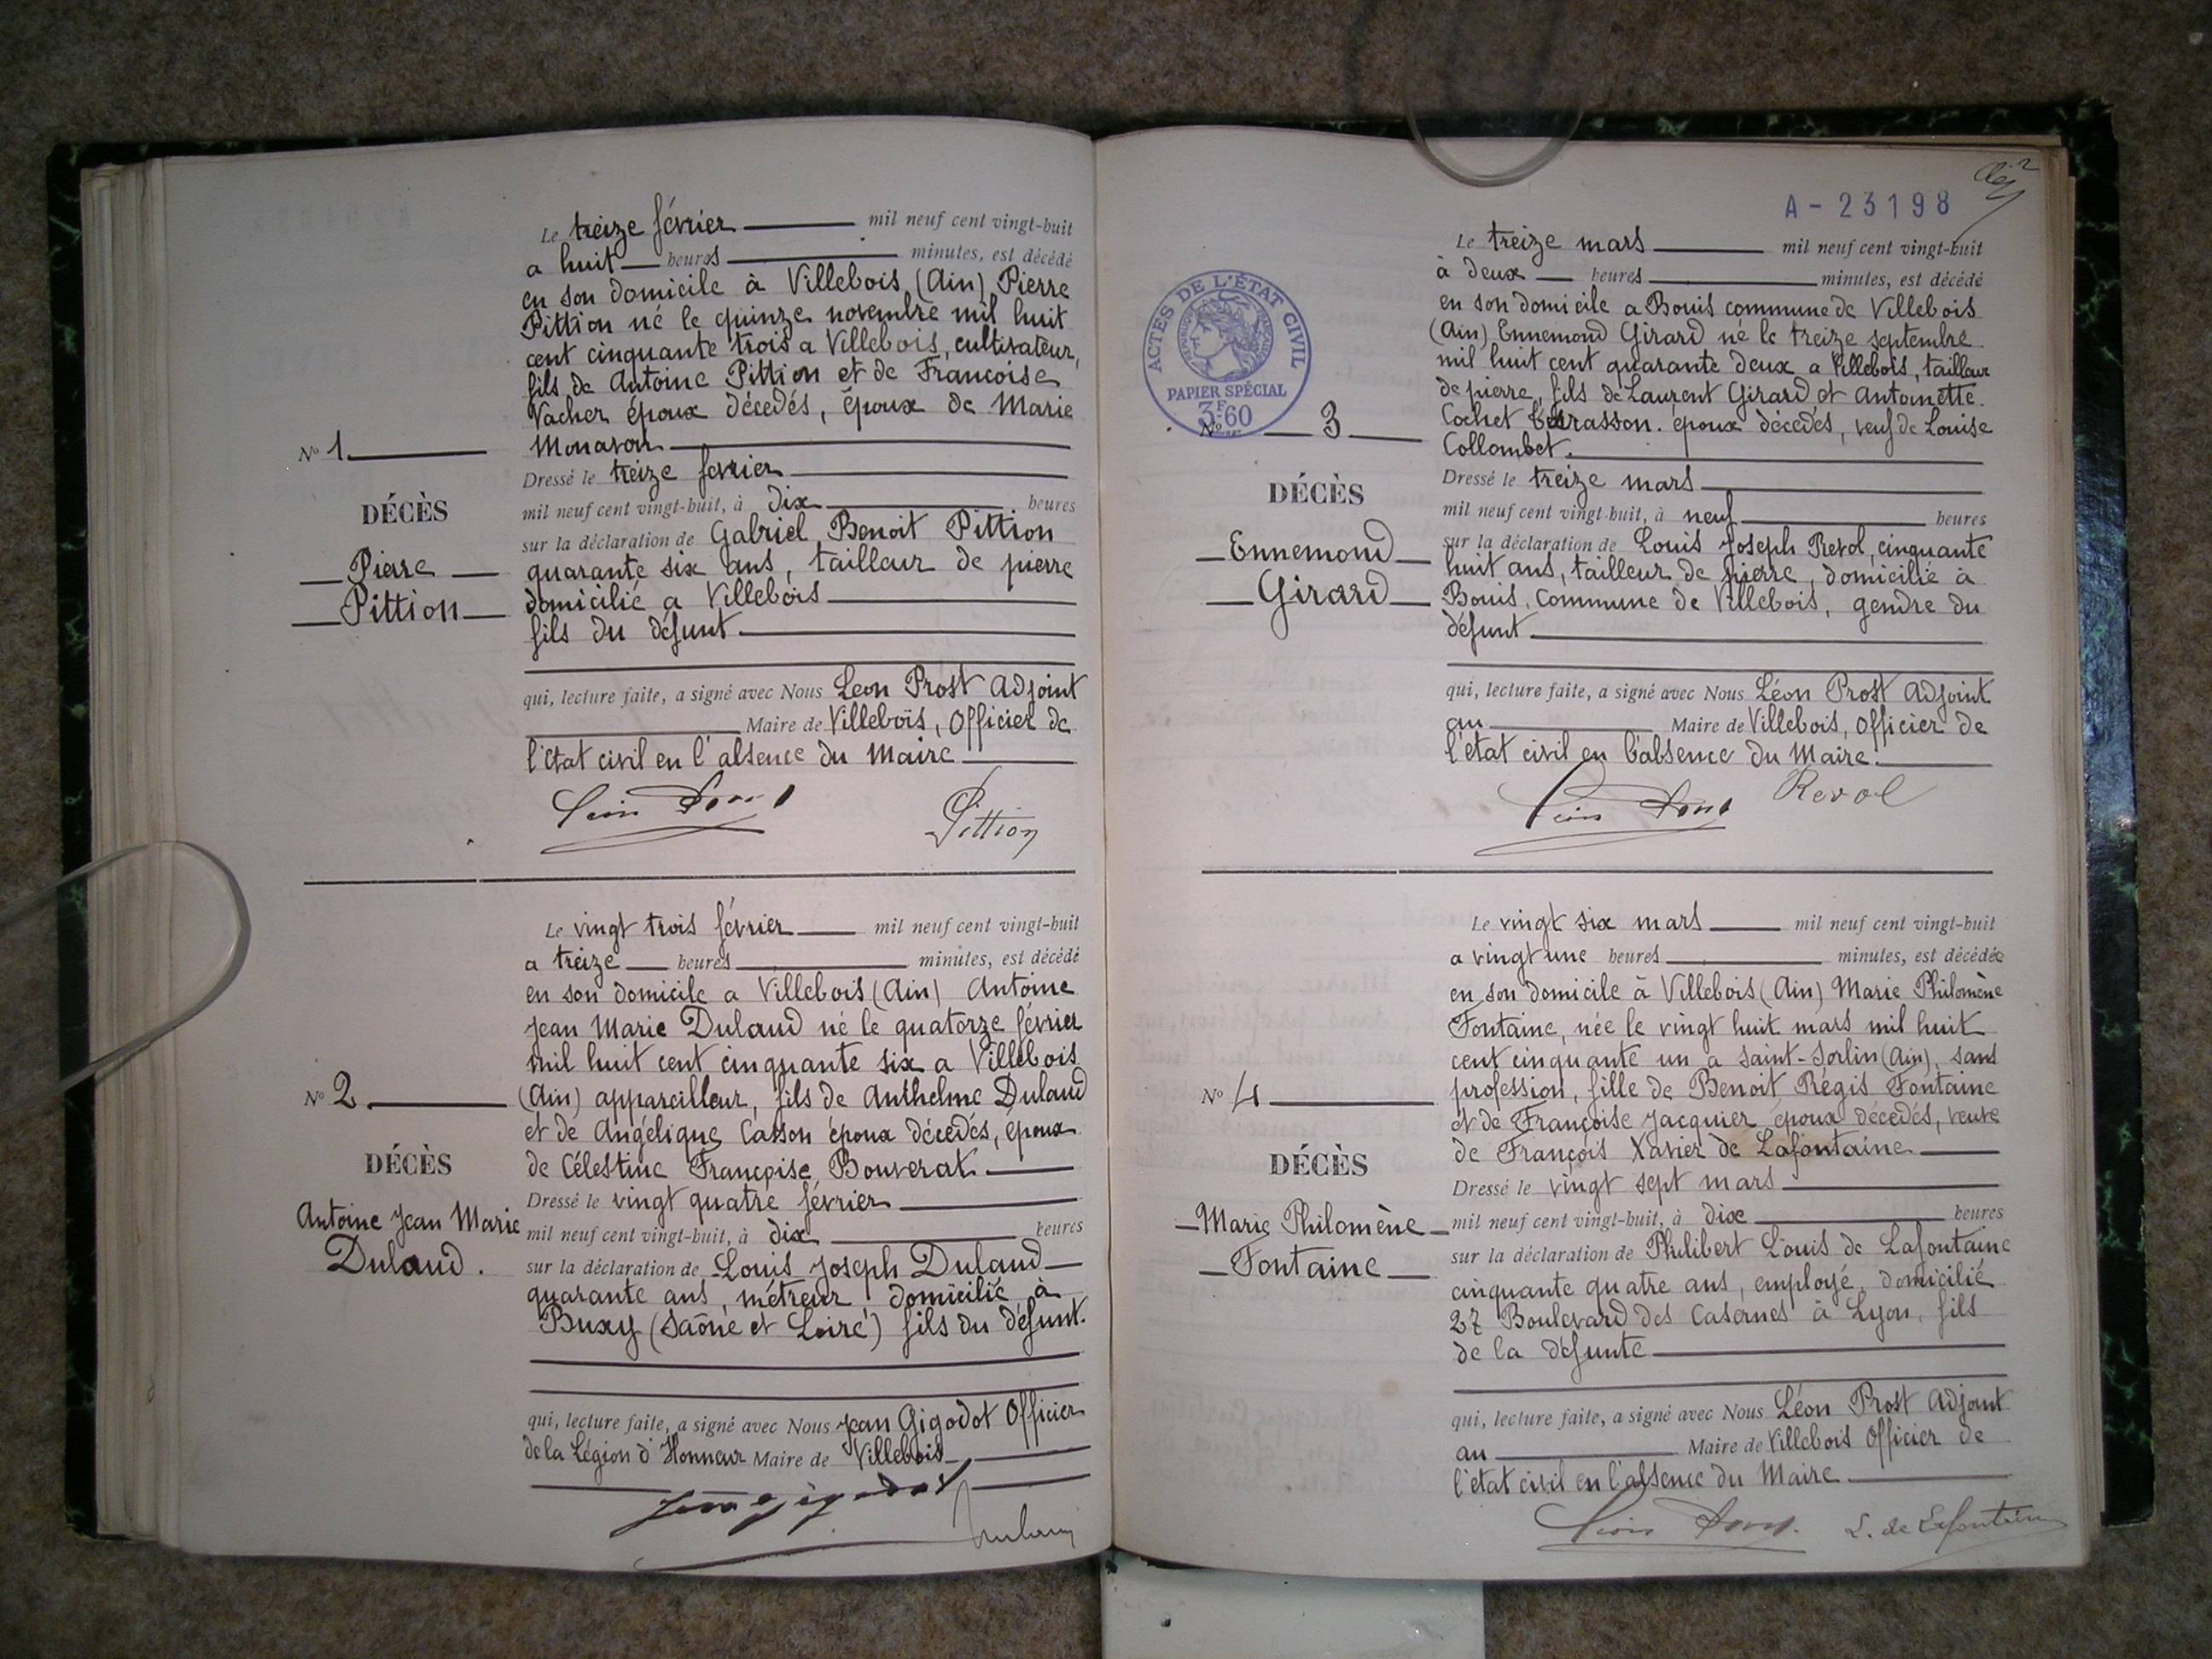 Le treize février mil neuf cent vingt-huit
a huit heures minutes, est décédé
en son domicile à Villebois (Ain) Pierre
Pittion né le quinze novembre mil huit
cent cinquante trois a Villebois, cultivateur,
fils de Antoine Pittion et de Francoise
Vacher époux décedés, époux de Marie
Monavon
Nº 1
Dressé le treize fevrier
mil neuf cent vingt-huit, à dix heures
DÉCÈS
Pierre
Pittion
sur la déclaration de Gabriel Benoit Pittion
quarante six ans, tailleur de pierre
domicilié a Villebois
fils du défunt
qui, lecture faite, a signé avec Nous Leon Prost Adjoint
Maire de Villebois, Officier de
l'état civil en l'absence du Maire
Léon Prost Pittion
Le vingt trois février mil neuf cent vingt-huit
a treize heures minutes, est décédé
en son domicile a Villebois (Ain) Antoine
Jean Marie Dulaud né le quatorze février
mil huit cent cinquante six a Villebois
Nº 2
(Ain) appareilleur, fils de Anthelme Dulaud
et de Angélique Casson époux décedés, époux
de Célestine Françoise Bouverat
DÉCÈS
Antoine Jean Marie
Dulaud.
Dressé le vingt quatre février
mil neuf cent vingt-huit, à dix heures
sur la déclaration de Louis Joseph Dulaud
quarante ans, métreur domicilié à
Buxy (Saône et Loire) fils du défunt.
qui, lecture faite, a signé avec Nous Jean Gigodot Officier
de la Légion d'Honneur Maire de Villebois
Jean Gigodot Dulaud
A-23198
Le treize mars mil neuf cent vingt-huit
à deux heures minutes, est décédé
en son domicile a Bouis commune de Villebois
(Ain) Ennemond Girard né le treize septembre
mil huit cent quarante deux a Villebois, tailleur
de pierre, fils de Laurent Girard et Antoinette
Cochet Terrasson. époux décedés, veuf de Louise
Collombet.
ACTES DE L'ÉTAT CIVIL
RÉPUBLIQUE FRANÇAISE
PAPIER SPÉCIAL
3F60
Nº 3
DÉCÈS
Ennemond
Girard
Dressé le treize mars
mil neuf cent vingt-huit, à neuf heures
sur la déclaration de Louis Joseph Revol, cinquante
huit ans, tailleur de pierre, domicilié à
Bouis, Commune de Villebois, gendre du
défunt
qui, lecture faite, a signé avec Nous Léon Prost Adjoint
au Maire de Villebois, Officier de
l'état civil en l'absence du Maire.
Léon Prost Revol
Le vingt six mars mil neuf cent vingt-huit
a vingt une heures minutes, est décédée
en son domicile à Villebois (Ain) Marie Philomène
Fontaine, née le vingt huit mars mil huit
cent cinquante un a Saint-Sorlin (Ain), sans
profession, fille de Benoit Régis Fontaine
et de Françoise Jacquier époux décedés, veuve
de François Xavier de Lafontaine
Nº 4
DÉCÈS
Marie Philomène
Fontaine
Dressé le vingt sept mars
mil neuf cent vingt-huit, à dix heures
sur la déclaration de Philibert Louis de Lafontaine
cinquante quatre ans, employé, domicilié
27 Boulevard des Casernes à Lyon, fils
de la défunte
qui, lecture faite, a signé avec Nous Léon Prost Adjoint
au Maire de Villebois Officier de
l'état civil en l'absence du Maire
Léon Prost. L. de Lafontaine